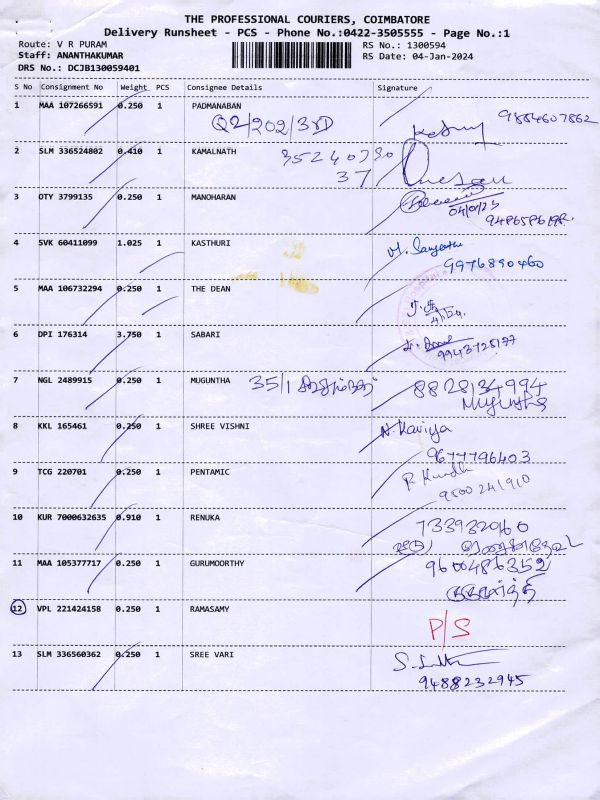 THE PROFESSIONAL COURIERS, COIMBATORE
Delivery Runsheet - PCS - Phone No.:0422-3505555 - Page No.:1
Route: V R PURAM
RS No.: 1300594
Staff: ANANTHAKUMAR
RS Date: 04-Jan-2024
DRS No.: DCJB130059401
S No Consignment No Weight PCS Consignee Details Signature
1 MAA 107266591 0.250 1 PADMANABAN
Q2/202/3RD 9884607862
2 SLM 336524802 0.410 1 KAMALNATH 35240730
37
3 OTY 3799135 0.250 1 MANOHARAN
04/01/23
4 SVK 60411099 1.025 1 KASTHURI
9976890460
5 MAA 106732294 0.250 1 THE DEAN
6 DPI 176314 3.750 1 SABARI
9943725177
7 NGL 2489915 0.250 1 MUGUNTHA 35/1 8828134994
Muguntha
8 KKL 165461 0.250 1 SHREE VISHNI N. Kaviya
9677796403
9 TCG 220701 0.250 1 PENTAMIC
9500241910
10 KUR 7000632635 0.910 1 RENUKA 733932060
11 MAA 105377717 0.250 1 GURUMOORTHY 9600486352
12 VPL 221424158 0.250 1 RAMASAMY
P/S
13 SLM 336560362 0.250 1 SREE VARI
9488232945